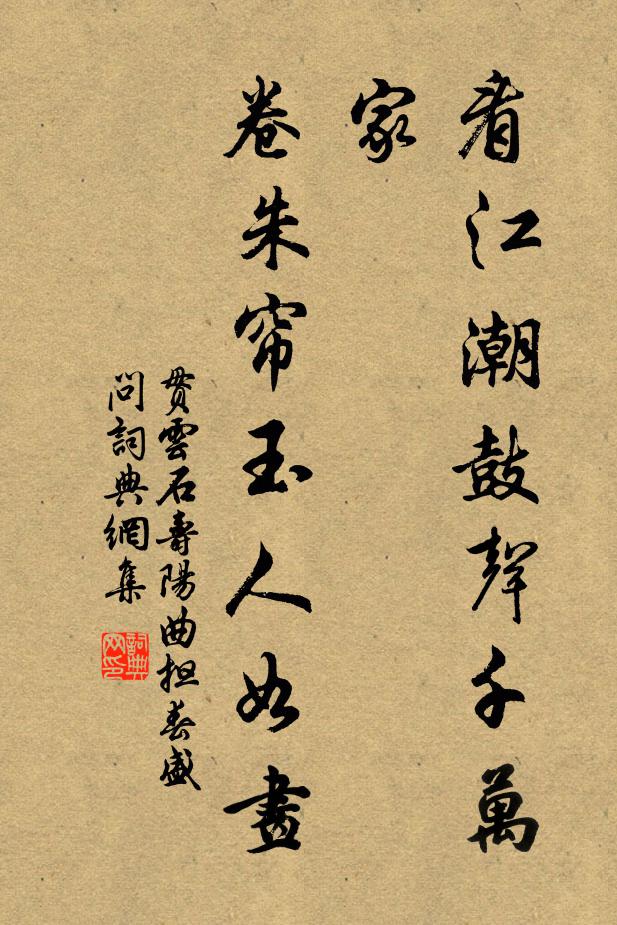 看江潮鼓聲千萬
家
卷朱帘玉人如畫
貫雲石壽陽曲担春盛
問詞典網集
詞典
网印